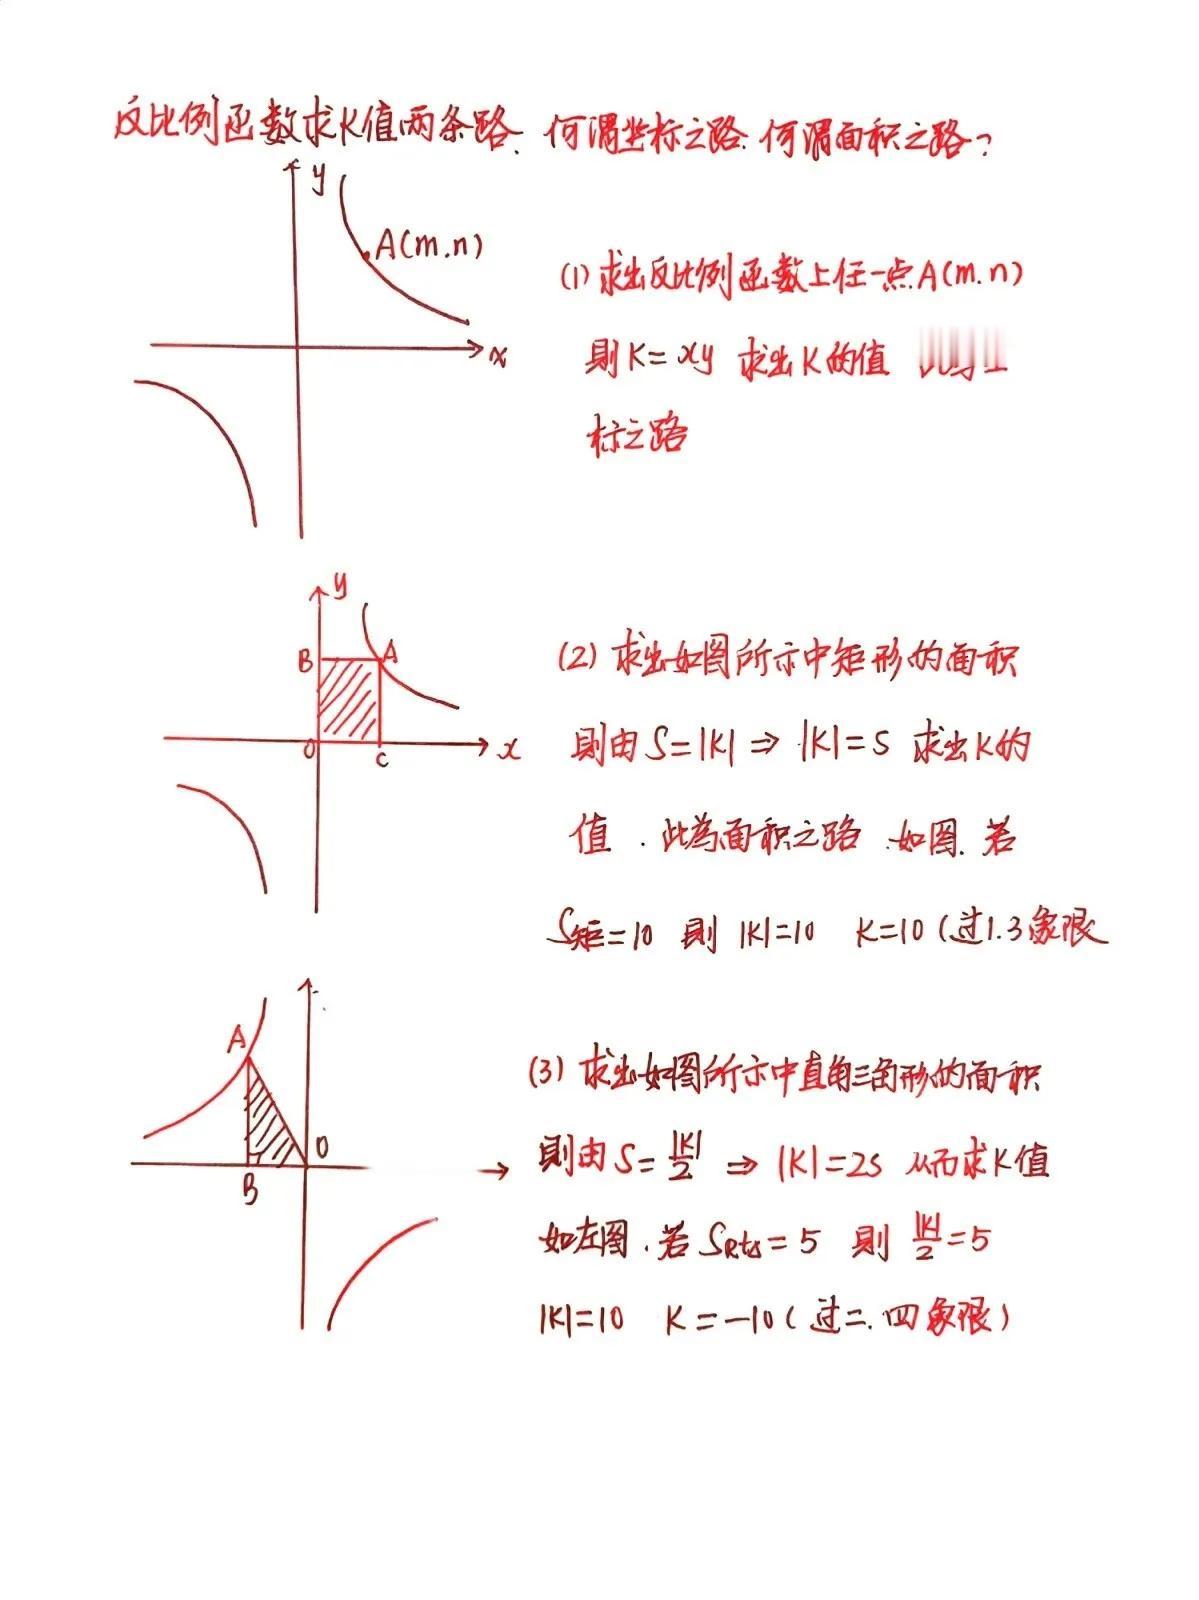 反比例函数求K值两条路、何谓坐标之路、何谓面积之路?
y
A(m.n)
x
(1)求出反比例函数上任一点A(m.n)
则K=xy 求出K的值
标之路
y
B
A
O
C
x
(2)求出如图所示中矩形的面积
则由S=|K|⇒|K|=S 求出K的
值.此為面积之路.如图.若
S矩=10 则 |K|=10 K=10(过1.3象限
A
O
B
(3)求出如图所示中直角三角形的面积
则由S=|K|/2 ⇒ |K|=2S 从而求K值
如左图.若SRt△=5 则 |K|/2=5
|K|=10 K=-10(过二.四象限)